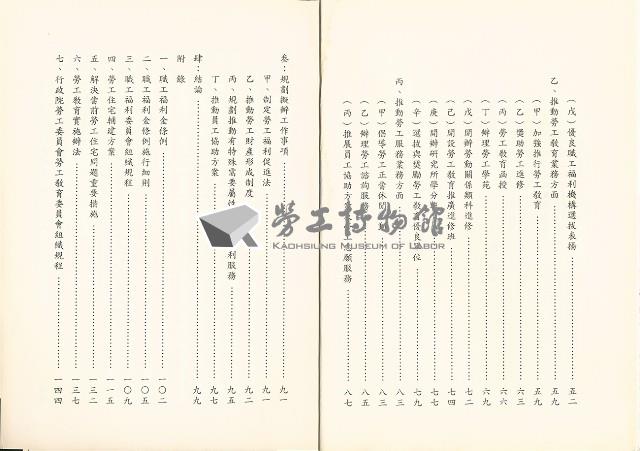 (戊)優良職工福利機構選拔表揚……五二
乙、推動勞工教育業務方面……五九
(甲)加強推行勞工教育……五九
(乙)獎助勞工進修……六三
(丙)勞工教育函授……六六
(丁)辦理勞工學苑……六九
(戊)開辦勞動關係類科進修……七二
(己)開設勞工教育推廣進修班……七四
(庚)開辦研究所學分……七七
(辛)選拔與獎勵勞工教育優良單位……七九
丙、推動勞工服務業務方面……八三
(甲)倡導勞工正當休閒活動……八三
(乙)辦理勞工諮詢服務……八五
(丙)推展員工協助方案……志願服務……八七
叁:規劃擬辦工作事項……九一
甲、制定勞工福利促進法……九一
乙、推動勞工財產形成制度……九二
丙、規劃推動有特殊需要屬性……利服務……九五
丁、推動員工協助方案……九七
肆:結論……九九
附錄
一、職工福利金條例……一〇二
二、職工福利金條例施行細則……一〇五
三、職工福利委員會組織規程……一〇九
四、勞工住宅輔建方案……一一五
五、解決當前勞工住宅問題重要措施……一三二
六、勞工教育實施辦法……一三七
七、行政院勞工委員會勞工教育委員會組織規程……一四四
勞工博物館
KAOHSIUNG MUSEUM OF LABOR